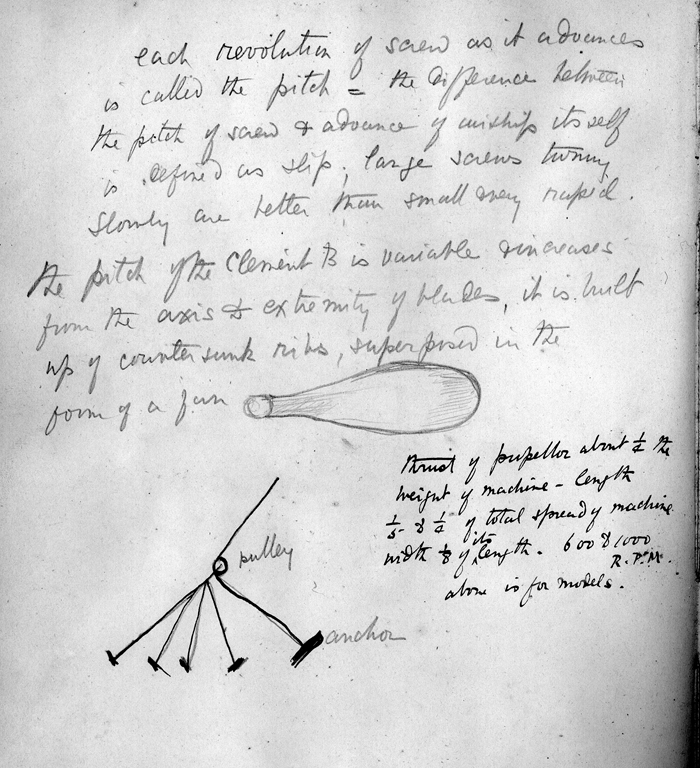 each revolution of screw as it advances
is called the pitch = the difference between
the pitch of screw & advance of airship itself
is defined as slip; large screws turning
slowly are better than small very rapid.
the pitch of the Clement B is variable & increases
from the axis to extremity of blades, it is built
up of countersunk ribs, superposed in the
form of a fan
thrust of propellor about 1/4 the
weight of machine - length
1/5 to 1/4 of total spread of machine
width 1/8 of its length. 600 to 1000
R.P.M.
above is for models.
pulley
anchor